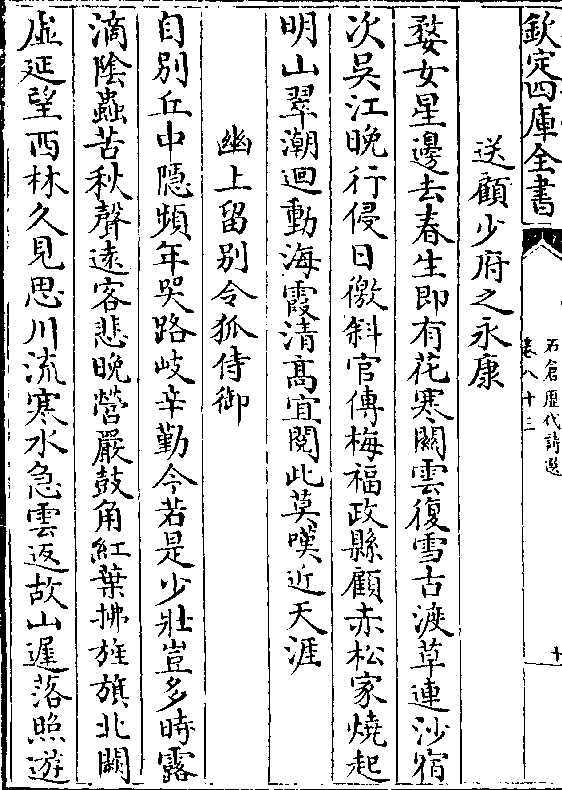 欽定四庫全書
石倉歷代詩選
卷八十三
十
送顧少府之永康
婺女星邊去春生即有花寒關雲復雪古渡草連沙宿
次吳江晚行侵日徼斜官傳梅福政縣顧赤松家燒起
明山翠潮迴動海霞清髙宜閱此莫嘆近天涯
幽上留别令狐侍御
自别丘中隠頻年哭路岐辛勤今若是少壯豈多時露
滴陰蟲苦秋聲逺客悲晚營嚴鼓角紅葉拂旌旗北闕
虛延望西林久見思川流寒水急雲返故山遲落照逰